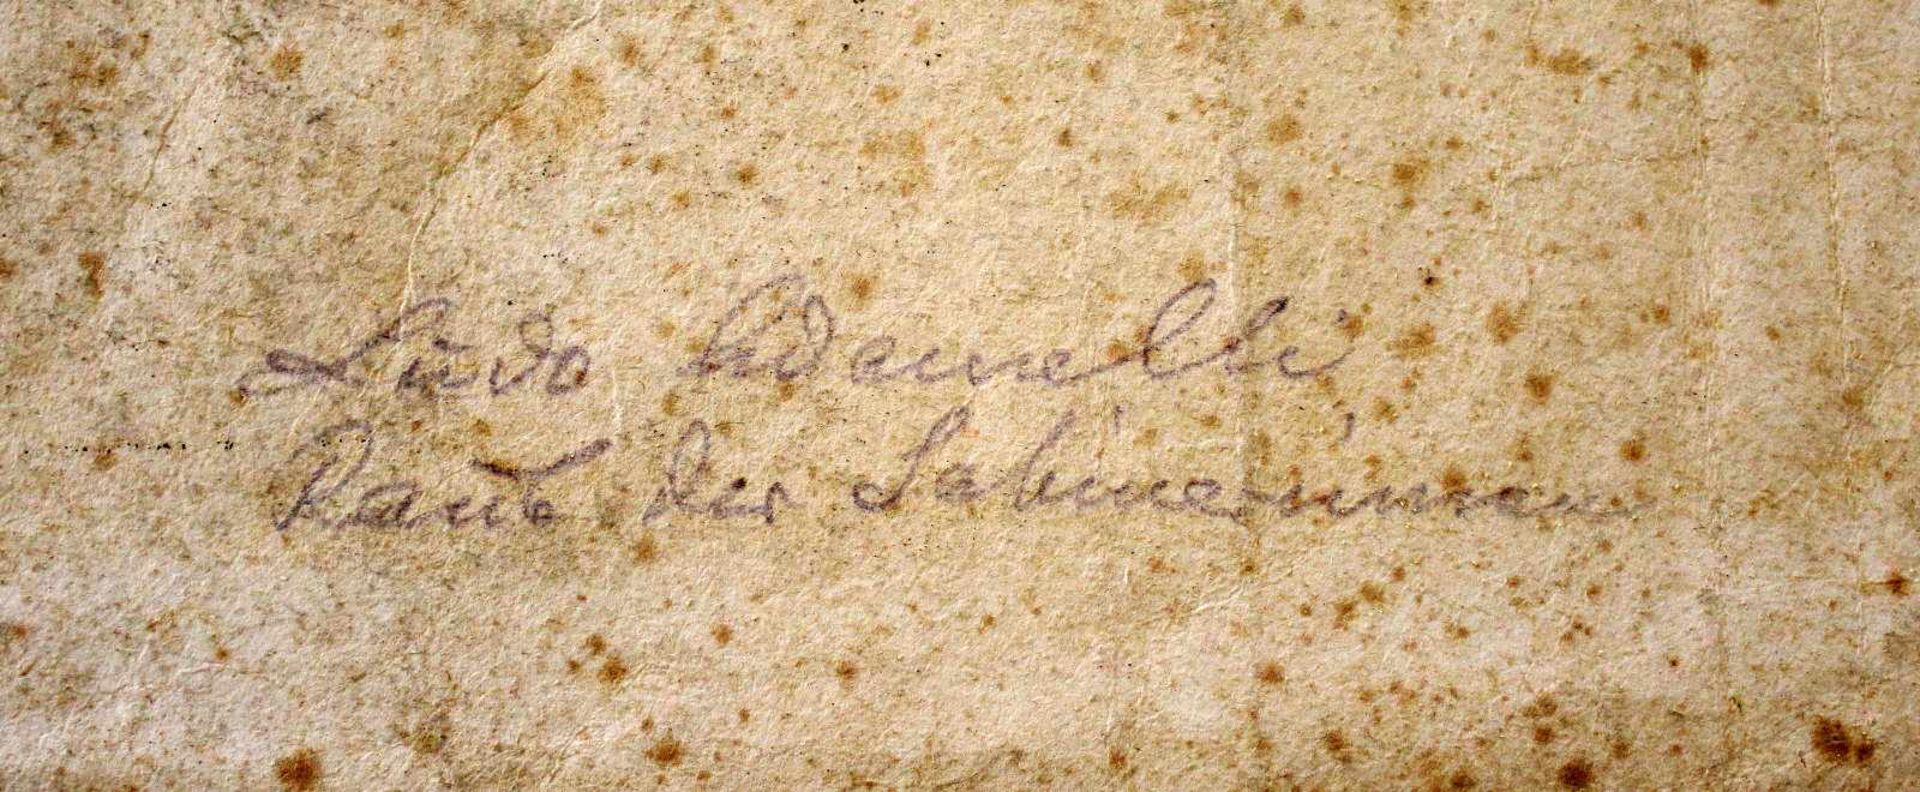 Ludo Adamelli
Raub der Sabinerinnen